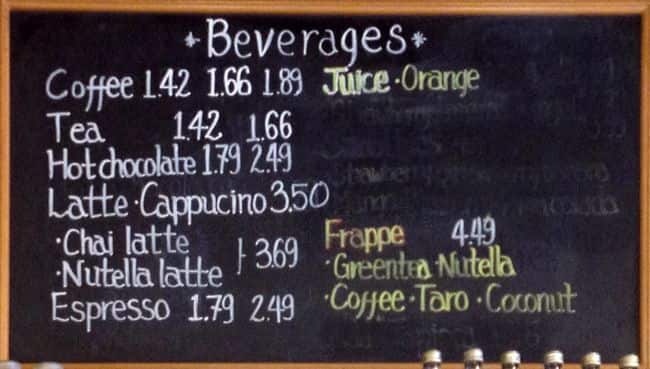 *Beverages*
Coffee 1.42 1.66 1.89
Tea 1.42 1.66
Hot chocolate 1.79 2.49
Latte · Cappucino 3.50
· Chai latte
· Nutella latte } 3.69
Espresso 1.79 2.49
Juice · Orange
Frappe 4.49
· Greentea · Nutella
· Coffee · Taro · Coconut